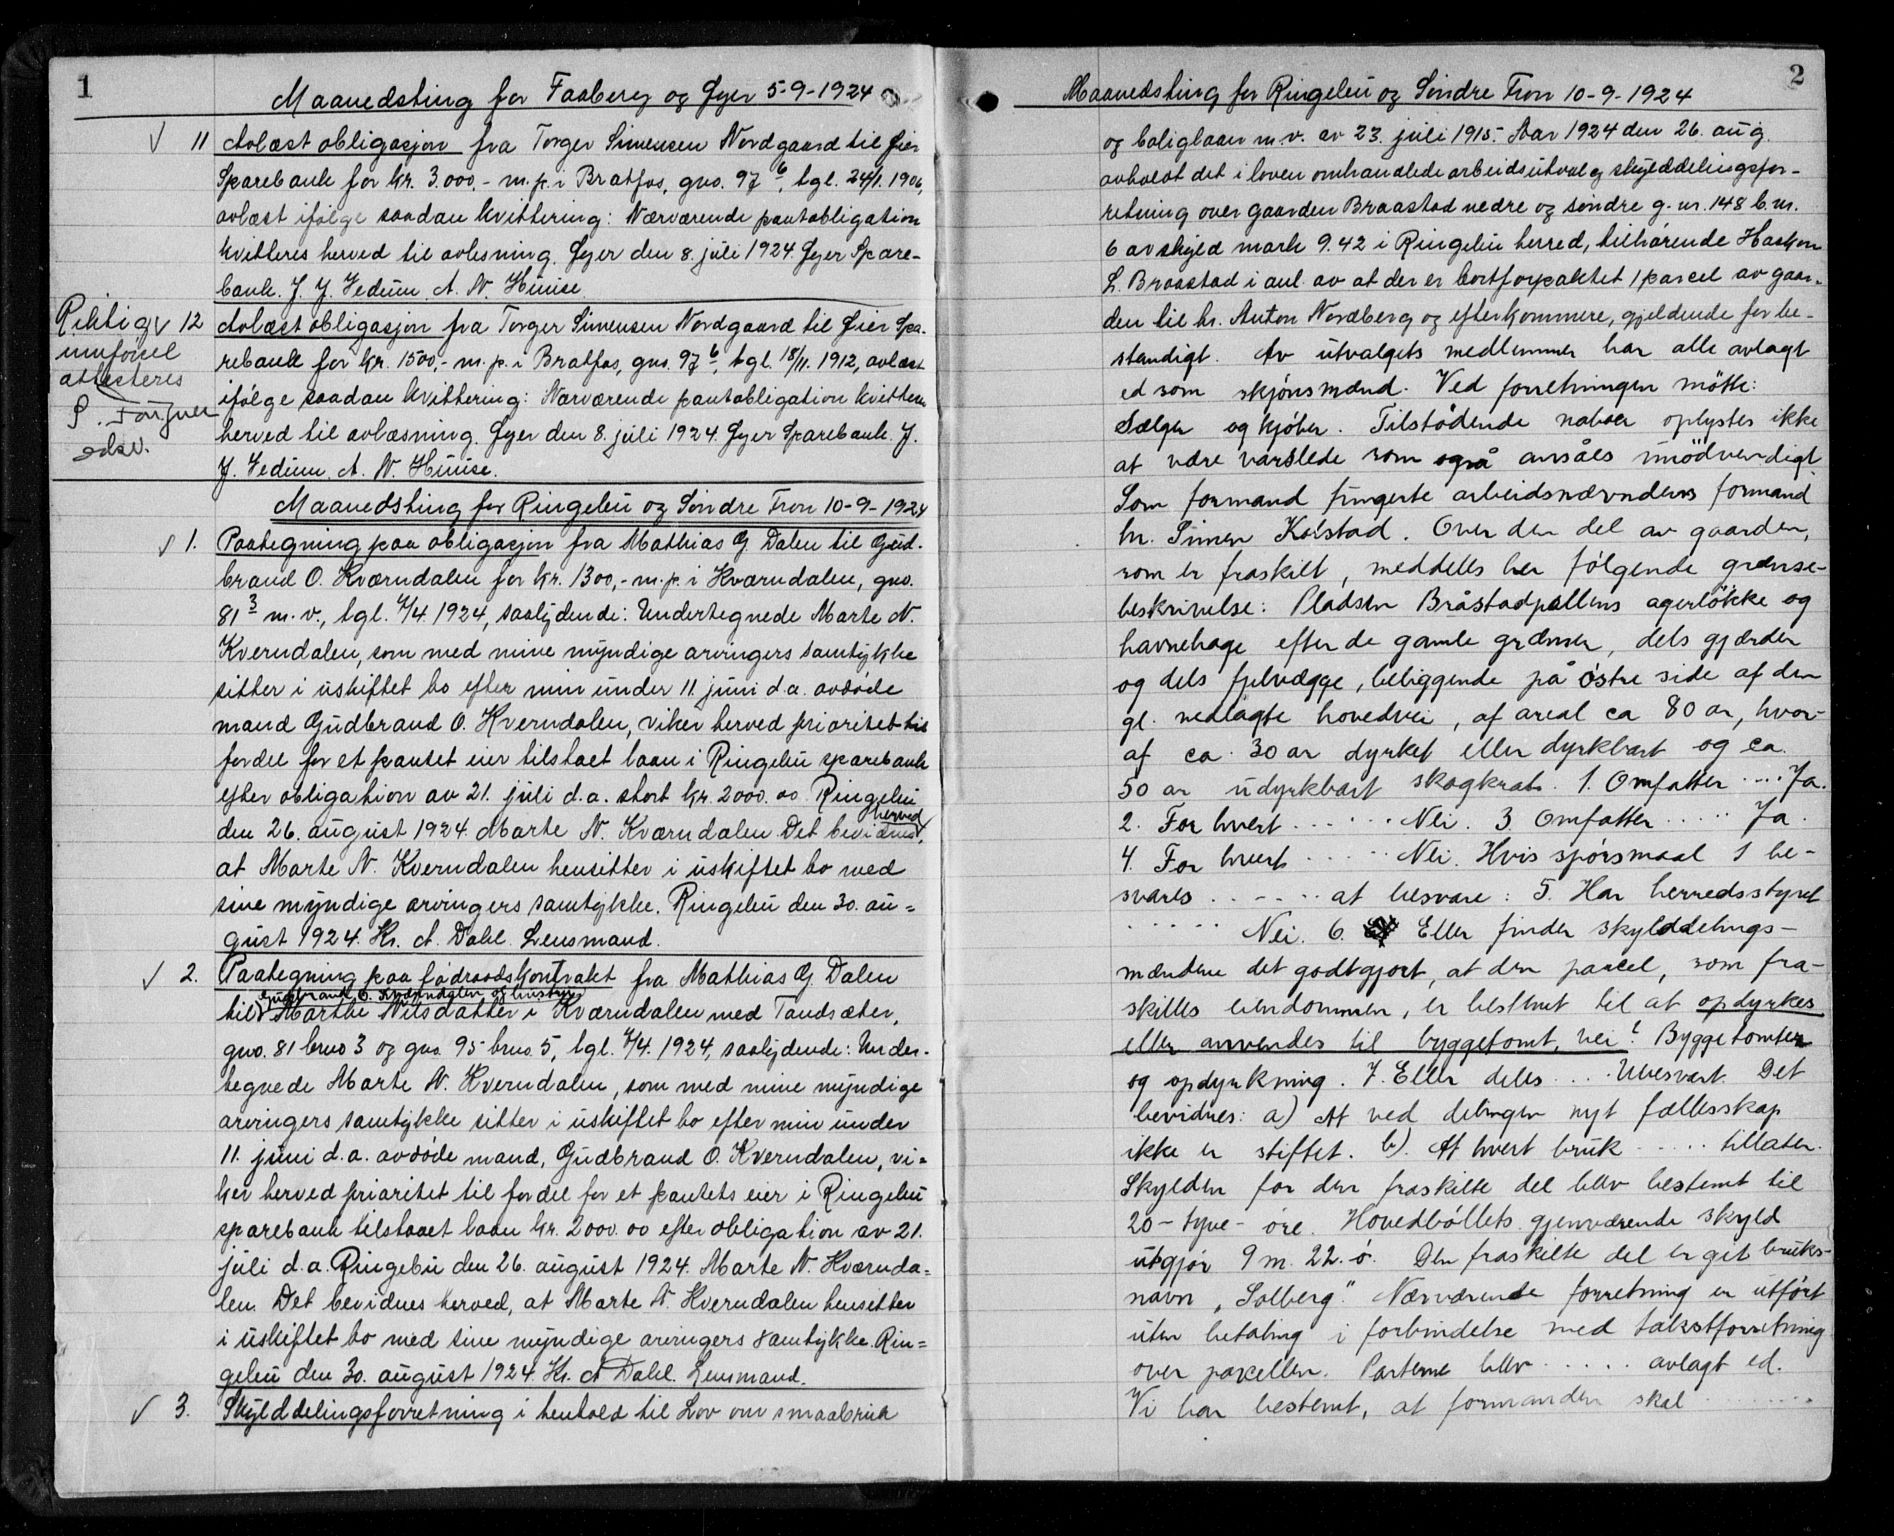 1
Maanedsting for Faaberg og Øyer 5-9-1924
✓ 11 Avlæst obligasjon fra Torger Simensen Nordgaard til Øier
Sparebank for kr. 3.000,- m.p. i Bratfos, gno. 97 6, tgl. 24/1. 1906,
avlæst ifølge saadan kvittering: Nærværende pantobligation
kvitteres herved til avlesning. Øyer den 8. juli 1924. Øyer Spare-
bank. J. J. Jedum. A. N. Huuse.
Riktig
innførsel
attesteres
S.
edsv.
✓ 12 Avlæst obligasjon fra Torger Simensen Nordgaard til Øier Spa-
rebank for kr. 1500,- m.p. i Bratfos, gno. 97 6, tgl. 18/11. 1912, avlæst
ifølge saadan kvittering: Nærværende pantobligation kvitteres
herved til avlæsning. Øyer den 8. juli 1924. Øyer Sparebank. J.
J. Jedum. A. N. Huuse.
Maanedsting for Ringebu og Söndre Fron 10-9-1924
✓ 1. Paategning paa obligasjon fra Mathias G. Dalen til Gud-
brand O. Kværndalen for kr. 1300,- m.p. i Kværndalen, gno.
81 3 m.v., tgl. 4/4. 1924, saalydende: Undertegnede Marte N.
Kverndalen, som med mine myndige arvingers samtykke
sitter i uskiftet bo efter min under 11. juni d.a. avdöde
mand Gudbrand O. Kverndalen, viker herved prioritet til
fordel for et pantet eier tilstaaet laan i Ringebu sparebank
efter obligation av 21. juli d.a. stort kr. 2000.00 Ringebu
den 26. august 1924. Marte N. Kværndalen. Det bevidnes herved,
at Marte N. Kverndalen hensitter i uskiftet bo med
sine myndige arvingers samtykke. Ringebu den 30. au=
gust 1924. Kr. A. Dahl. Lensmand.
✓ 2. Paategning paa födraadskontrakt fra Mathias G. Dalen
til Gudbrand O. Kværndalen og hustru Marthe Nilsdatter i Kværndalen med Tandsæter,
gno. 81 bno 3 og gno. 95 bno. 5, tgl. 4/4. 1924, saalydende: Under-
tegnede Marte N. Kverndalen, som med mine myndige
arvingers samtykke sitter i uskiftet bo efter min under
11. juni d.a. avdöde mand, Gudbrand O. Kverndalen, vi=
ker herved prioritet til fordel for et pantets eier i Ringebu
sparebank tilstaaet laan kr. 2000.00 efter obligation av 21.
juli d.a. Ringebu den 26. august 1924. Marte N. Kværnda=
len. Det bevidnes herved, at Marte N. Kverndalen hensitter
i uskiftet bo med sine myndige arvingers samtykke. Rin=
gebu den 30. august 1924. Kr. A Dahl. Lensmand.
✓ 3. Skylddelingsforretning i henhold til Lov om smaabruk
2
Maanedsting for Ringebu og Söndre Fron 10-9-1924
og boliglaan m.v. av 23. juli 1915. Aar 1924 den 26. aug.
avholdt det i loven omhandlede arbeidsutvalg skylddelingsfor-
retning over gaarden Braastad nedre og söndre g.nr. 148 b.nr.
6 av skyld mark 9.42 i Ringebu herred, tilhörende Haakon
L. Braastad i anl. av at der er bortforpaktet 1 parcel av gaar-
den til hr. Anton Nordberg og efterkommere, gjeldende for be-
standigt. Av utvalgets medlemmer har alle avlagt
ed som skjönsmænd. Ved forretningen mötte:
Sælger og kjöber. Tilstödende naboer oplystes ikke
at være varslede som også ansåes unödvendigt
Som formand fungerte arbeidsnævndens formand
hr. Simen Korstad. Over den del av gaarden,
som er fraskilt, meddeles her følgende grænse-
beskrivelse: Pladsen Bråstadpallens agerlökke og
havnehage efter de gamle grænser, dels gjærder
og dels fjelvægge, beliggende på östre side af den
gl. nedlagte hovedvei, af areal ca 80 ar, hvor-
af ca. 30 ar dyrket eller dyrkbart og ca.
50 ar udyrkbart skogkrat. 1. Omfatter .... Ja.
2. For hvert ...... Nei. 3. Omfatter ..... Ja.
4. For hvert ..... Nei. Hvis spörsmaal 1 be-
svares ..... at besvare: 5. Har herredsstyret
..... Nei. 6. Eller finder skylddelings-
mændene det godtgjort, at den parcel, som fra-
skilles eiendommen, er bestemt til at opdyrkes
eller anvendes til byggetomt, vei? Byggetomter
og opdyrkning. 7. Eller deles .... Ubesvart. Det
bevidnes: a) At ved delingen nyt fællesskap
ikke er stiftet. b). At hvert bruk ..... tillater.
Skylden for den fraskilte del blev bestemt til
20 - tyve - öre. Hovedböllets gjenværende skyld
utgjör 9 m. 22. ö. Den fraskilte del er git bruks-
navn „Solberg". Nærværende forretning er utfört
uten betaling i forbindelse med takstforretning
over parcellen. Parterne blev ..... avlagt ed.
Vi har bestemt, at formanden skal ........